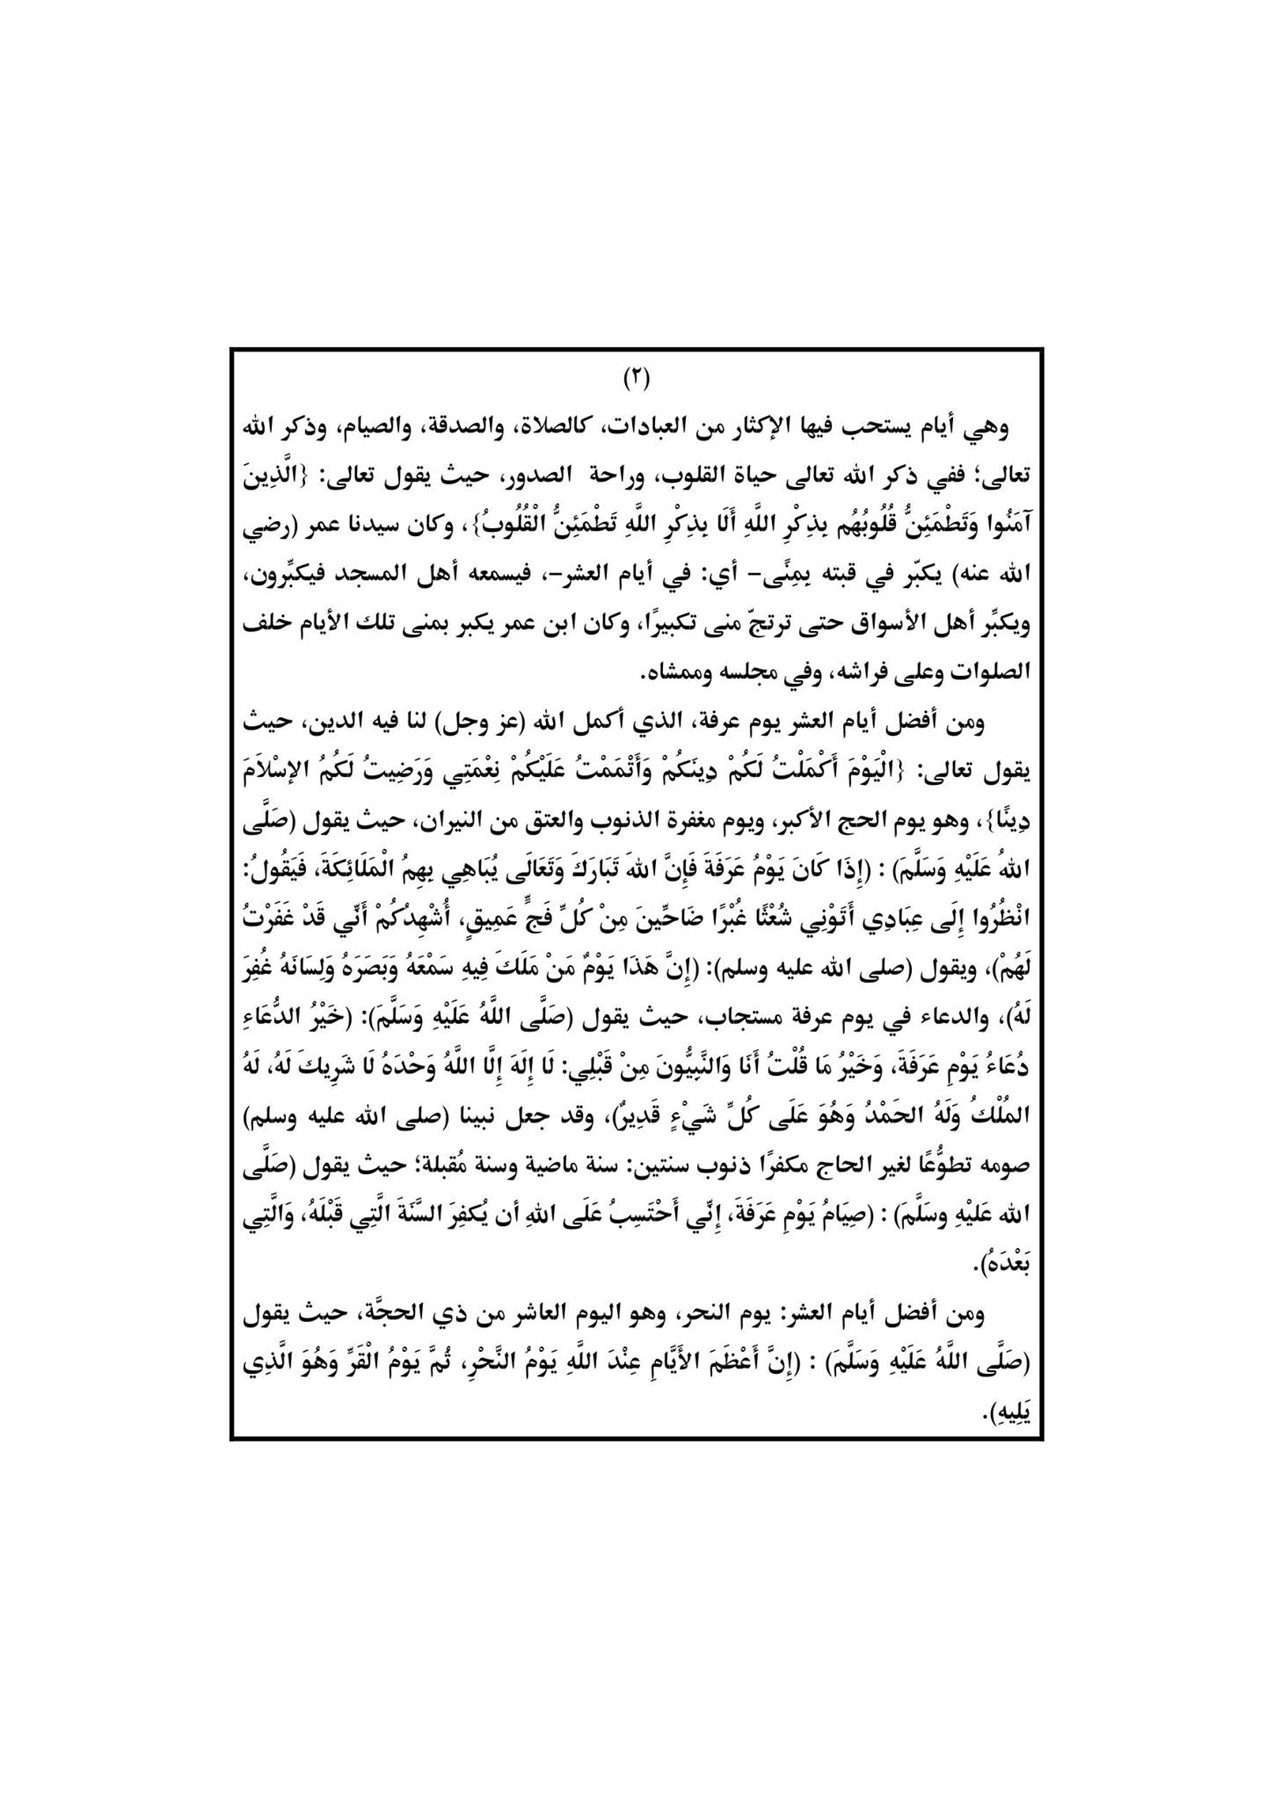 (٢)
وهي أيام يستحب فيها الإكثار من العبادات، كالصلاة، والصدقة، والصيام، وذكر الله
تعالى؛ ففي ذكر الله تعالى حياة القلوب، وراحة الصدور، حيث يقول تعالى: {الَّذِينَ
آمَنُوا وَتَطْمَئِنُّ قُلُوبُهُم بِذِكْرِ اللَّهِ أَلَا بِذِكْرِ اللَّهِ تَطْمَئِنُّ الْقُلُوبُ}، وكان سيدنا عمر (رضي
الله عنه) يكبّر في قبته بِمِنًى– أي: في أيام العشر–، فيسمعه أهل المسجد فيكبِّرون،
ويكبِّر أهل الأسواق حتى ترتجّ منى تكبيرًا، وكان ابن عمر يكبر بمنى تلك الأيام خلف
الصلوات وعلى فراشه، وفي مجلسه وممشاه.
ومن أفضل أيام العشر يوم عرفة، الذي أكمل الله (عز وجل) لنا فيه الدين، حيث
يقول تعالى: {الْيَوْمَ أَكْمَلْتُ لَكُمْ دِينَكُمْ وَأَتْمَمْتُ عَلَيْكُمْ نِعْمَتِي وَرَضِيتُ لَكُمُ الإِسْلَامَ
دِينًا}، وهو يوم الحج الأكبر، ويوم مغفرة الذنوب والعتق من النيران، حيث يقول (صَلَّى
اللهُ عَلَيْهِ وَسَلَّمَ) : (إِذَا كَانَ يَوْمُ عَرَفَةَ فَإِنَّ اللهَ تَبَارَكَ وَتَعَالَى يُبَاهِي بِهِمُ الْمَلَائِكَةَ، فَيَقُولُ:
انْظُرُوا إِلَى عِبَادِي أَتَوْنِي شُعْثًا غُبْرًا ضَاحِّينَ مِنْ كُلِّ فَجٍّ عَمِيقٍ، أُشْهِدُكُمْ أَنِّي قَدْ غَفَرْتُ
لَهُمْ)، ويقول (صلى الله عليه وسلم): (إِنَّ هَذَا يَوْمٌ مَنْ مَلَكَ فِيهِ سَمْعَهُ وَبَصَرَهُ وَلِسَانَهُ غُفِرَ
لَهُ)، والدعاء في يوم عرفة مستجاب، حيث يقول (صَلَّى اللَّهُ عَلَيْهِ وَسَلَّمَ): (خَيْرُ الدُّعَاءِ
دُعَاءُ يَوْمِ عَرَفَةَ، وَخَيْرُ مَا قُلْتُ أَنَا وَالنَّبِيُّونَ مِنْ قَبْلِي: لَا إِلَهَ إِلَّا اللَّهُ وَحْدَهُ لَا شَرِيكَ لَهُ، لَهُ
المُلْكُ وَلَهُ الحَمْدُ وَهُوَ عَلَى كُلِّ شَيْءٍ قَدِيرٌ)، وقد جعل نبينا (صلى الله عليه وسلم)
صومه تطوُّعًا لغير الحاج مكفرًا ذنوب سنتين: سنة ماضية وسنة مُقبلة؛ حيث يقول (صَلَّى
الله عَلَيْهِ وسَلَّمَ) : (صِيَامُ يَوْمِ عَرَفَةَ، إِنِّي أَحْتَسِبُ عَلَى اللهِ أن يُكفِرَ السَّنَةَ الَّتِي قَبْلَهُ، وَالَّتِي
بَعْدَهُ).
ومن أفضل أيام العشر: يوم النحر، وهو اليوم العاشر من ذي الحجَّة، حيث يقول
(صَلَّى اللَّهُ عَلَيْهِ وَسَلَّمَ) : (إِنَّ أَعْظَمَ الأَيَّامِ عِنْدَ اللَّهِ يَوْمُ النَّحْرِ، ثُمَّ يَوْمُ الْقَرِّ وَهُوَ الَّذِي
يَلِيهِ).